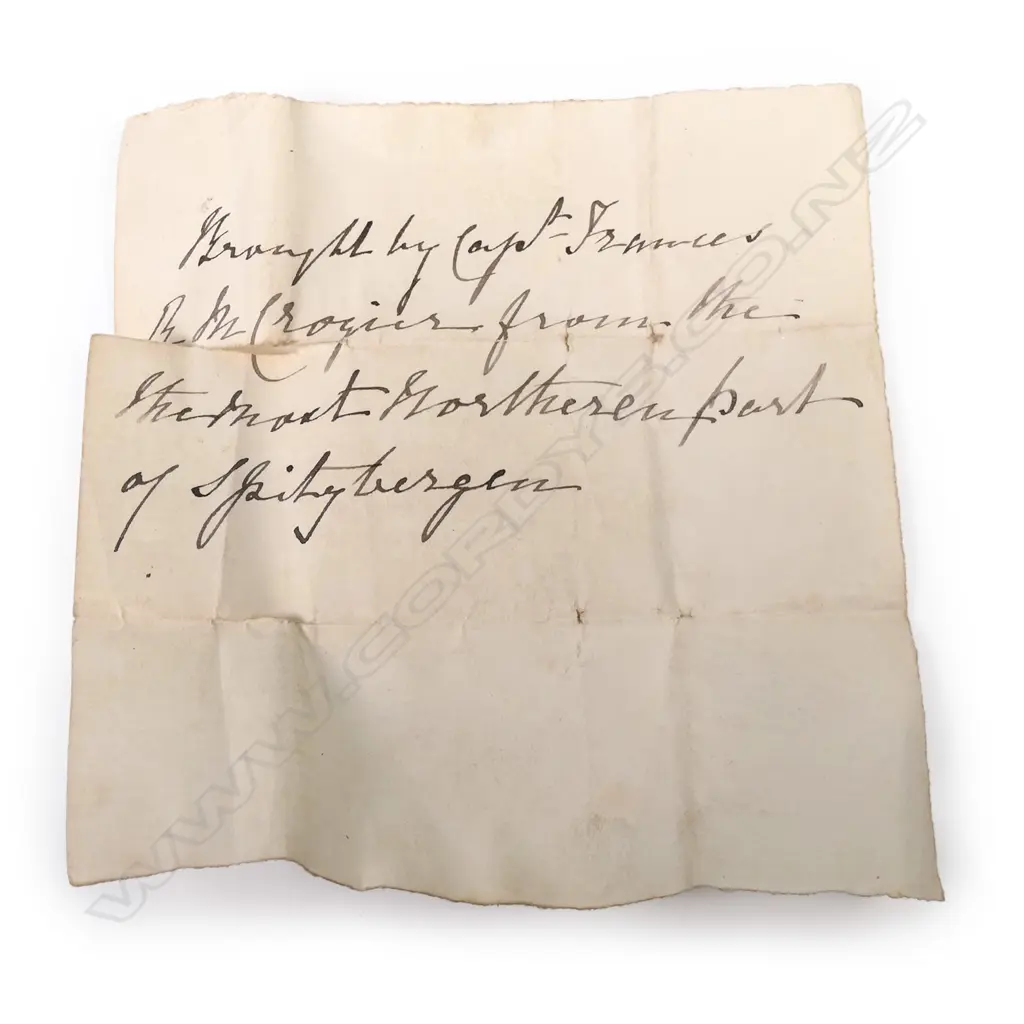 Brought by Capt Frances
R. M Crozier from the
the most Northeren part
of Spitzbergen
WWW.CORDYS.CO.NZ